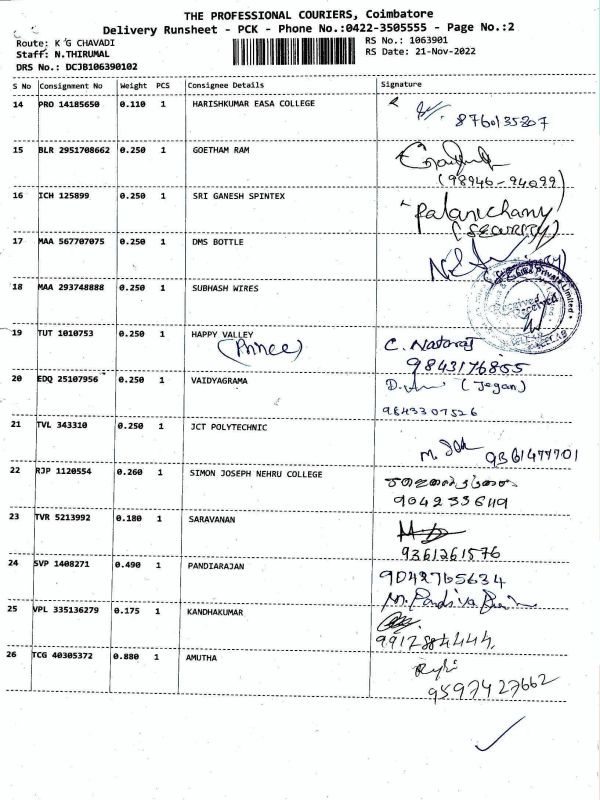 THE PROFESSIONAL COURIERS, Coimbatore
Delivery Runsheet - PCK - Phone No.:0422-3505555 - Page No.:2
Route: K G CHAVADI
RS No.: 1063901
Staff: N.THIRUMAL
RS Date: 21-Nov-2022
DRS No.: DCJB106390102
S No Consignment No Weight PCS Consignee Details Signature
14 PRO 14185650 0.110 1 HARISHKUMAR EASA COLLEGE
8760135807
15 BLR 2951708662 0.250 1 GOETHAM RAM
(98946-94099)
16 ICH 125899 0.250 1 SRI GANESH SPINTEX
Palanichamy
(SECURITY)
17 MAA 567707075 0.250 1 DMS BOTTLE
18 MAA 293748888 0.250 1 SUBHASH WIRES
Private Limited
Received
19 TUT 1010753 0.250 1 HAPPY VALLEY
(Annee) C. Nataraj
9843176855
20 EDQ 25107956 0.250 1 VAIDYAGRAMA
(Jegan)
9843307526
21 TVL 343310 0.250 1 JCT POLYTECHNIC
9361477701
22 RJP 1120554 0.260 1 SIMON JOSEPH NEHRU COLLEGE
904233649
23 TVR 5213992 0.180 1 SARAVANAN
9361261576
24 SVP 1408271 0.490 1 PANDIARAJAN
9042765634
25 VPL 335136279 0.175 1 KANDHAKUMAR
9917884444
26 TCG 40305372 0.880 1 AMUTHA
9597427662